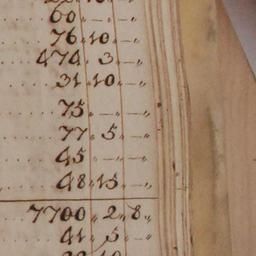 60 " — " — "
76 " 10 " — "
474 " 3 " — "
31 " 10 " — "
75 " — " — "
77 " 5 " — "
45 " — " — "
48 " 15 " — "
7700 " 2 " 8 "
41 " 5 " — "